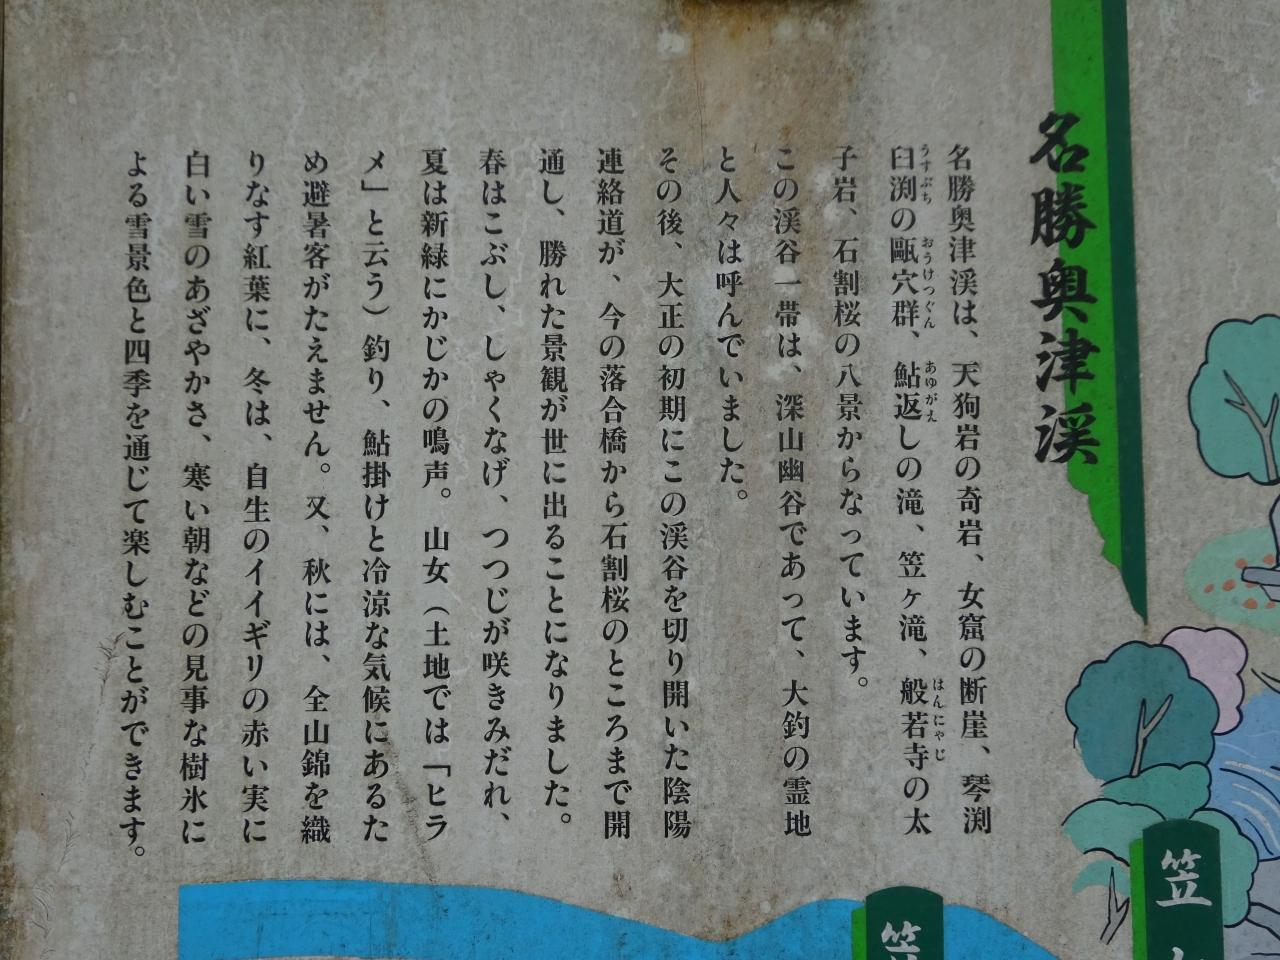 名勝奥津渓
名勝奥津渓は、天狗岩の奇岩、女窟の断崖、琴渕
臼渕の甌穴群、鮎返しの滝、笠ヶ滝、般若寺の太
うすぶち おうけつぐん あゆがえ はんにゃじ
子岩、石割桜の八景からなっています。
この渓谷一帯は、深山幽谷であって、大釣の霊地
と人々は呼んでいました。
その後、大正の初期にこの渓谷を切り開いた陰陽
連絡道が、今の落合橋から石割桜のところまで開
通し、勝れた景観が世に出ることになりました。
春はこぶし、しゃくなげ、つつじが咲きみだれ、
夏は新緑にかじかの鳴声。山女（土地では「ヒラ
メ」と云う）釣り、鮎掛けと冷涼な気候にあるた
め避暑客がたえません。又、秋には、全山錦を織
りなす紅葉に、冬は、自生のイイギリの赤い実に
白い雪のあざやかさ、寒い朝などの見事な樹氷に
よる雪景色と四季を通じて楽しむことができます。
笠
笠